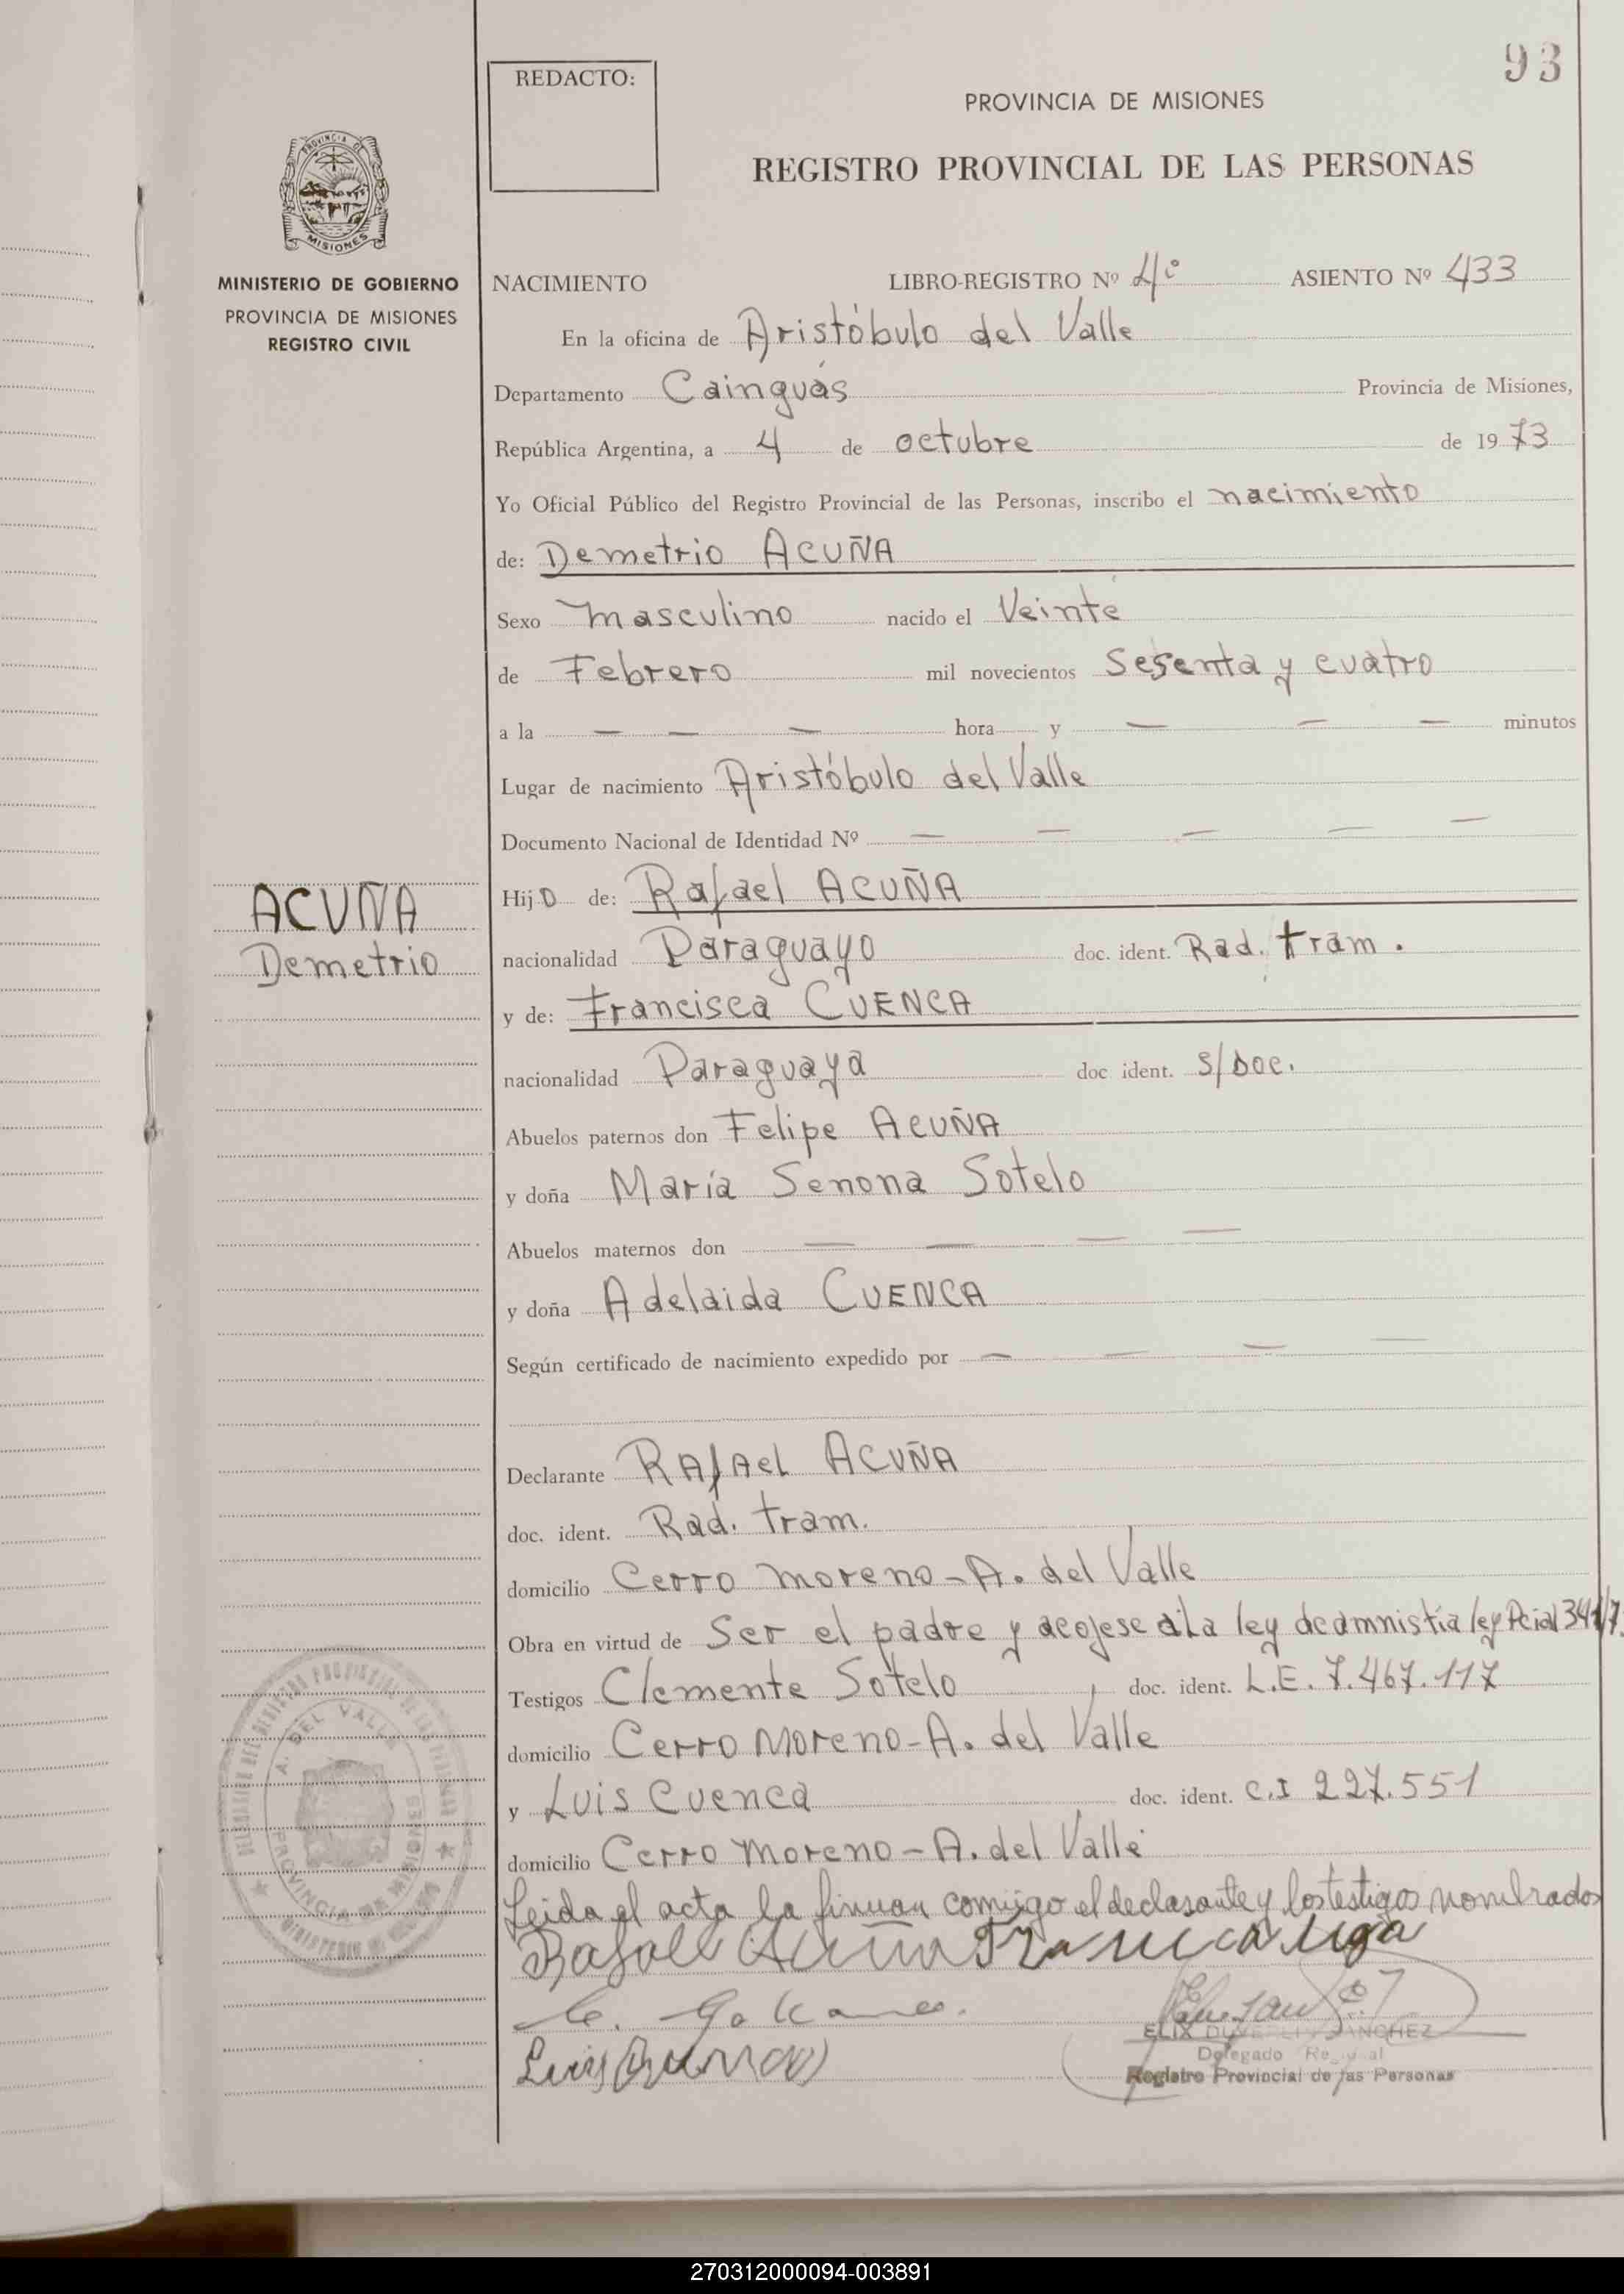 93
REDACTO:
PROVINCIA DE MISIONES
REGISTRO PROVINCIAL DE LAS PERSONAS
PROVINCIA DE
MISIONES
MINISTERIO DE GOBIERNO
PROVINCIA DE MISIONES
REGISTRO CIVIL
NACIMIENTO LIBRO-REGISTRO Nº 4º ASIENTO Nº 433
En la oficina de Aristóbulo del Valle
Departamento Cainguás Provincia de Misiones,
República Argentina, a 4 de octubre de 1973
Yo Oficial Público del Registro Provincial de las Personas, inscribo el nacimiento
de: Demetrio ACUÑA
Sexo masculino nacido el Veinte
de Febrero mil novecientos Sesenta y cuatro
a la — — — hora y — — — minutos
Lugar de nacimiento Aristóbulo del Valle
Documento Nacional de Identidad Nº — — — — —
ACUÑA
Demetrio
Hijo de: Rafael ACUÑA
nacionalidad Paraguayo doc. ident. Rad. tram.
y de: Francisca CUENCA
nacionalidad Paraguaya doc ident. S/Doc.
Abuelos paternos don Felipe ACUÑA
y doña María Senona Sotelo
Abuelos maternos don — — — —
y doña Adelaida CUENCA
Según certificado de nacimiento expedido por — — — —
Declarante RAfAel ACUÑA
doc. ident. Rad. tram.
domicilio Cerro Moreno - A. del Valle
Obra en virtud de Ser el padre y acojese a la ley de amnistía ley Pcial
Testigos Clemente Sotelo doc. ident. L.E. 7.467.117
domicilio Cerro Moreno - A. del Valle
y Luis Cuenca doc. ident. C.I 227.551
domicilio Cerro Moreno - A. del Valle
Leida el acta la firman conmigo el declarante y los testigos nombrados
Rafael Acuña
SANCHEZ
Delegado
Registro Provincial de las Personas
A. DEL VALLE
PROVINCIA DE MISIONES
270312000094-003891